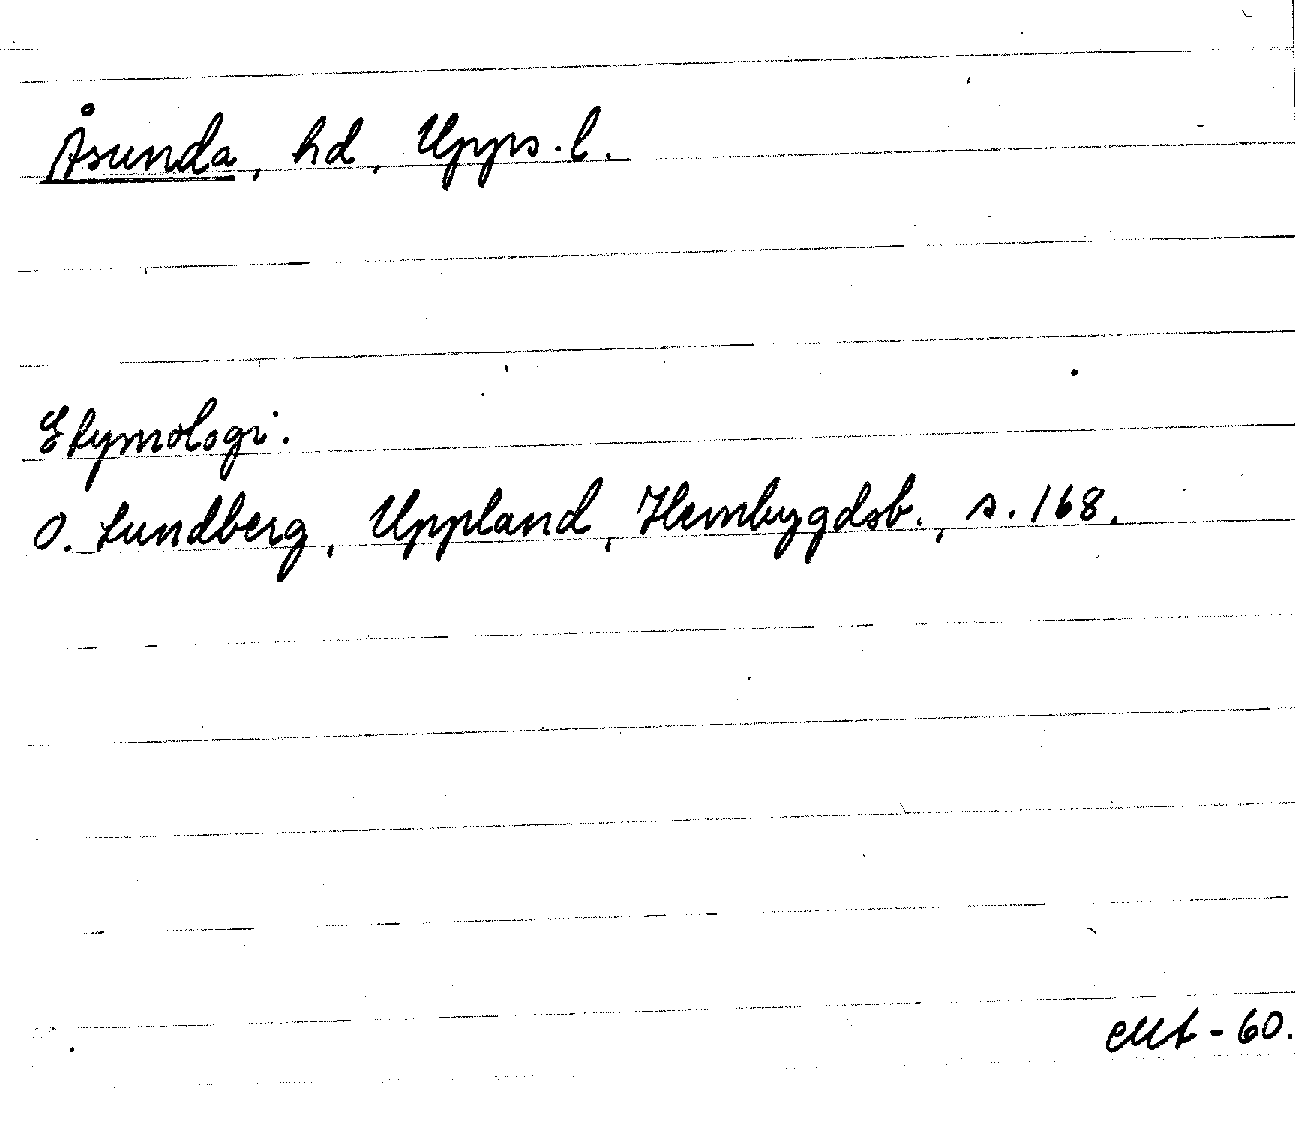 Åsunda, hd, Upps. l.
Etymologi.
O. Lundberg, Uppland, Hembygdsb., s. 168.
- 60.